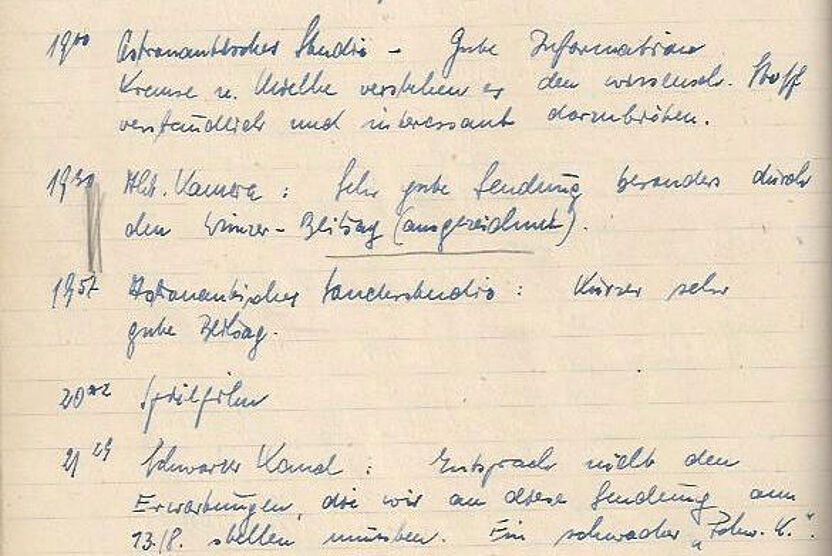 19⁰⁰ Astronautisches Studio - Gute Information
Krause u. Mielke verstehen es den wissensch. Stoff
verständlich und interessant darzubieten.
19³⁰ Akt. Kamera : Sehr gute Sendung besonders durch
den Winzer-Beitrag (ausgezeichnet).
19⁵⁷ Astronautisches Sonderstudio : Kurzer sehr
gute Beitrag.
20⁰² Spielfilm
21²⁹ Schwarzer Kanal : Entsprach nicht den
Erwartungen, die wir an diese Sendung am
13./8. stellen mussten. Ein schwacher „Schw. K.“.